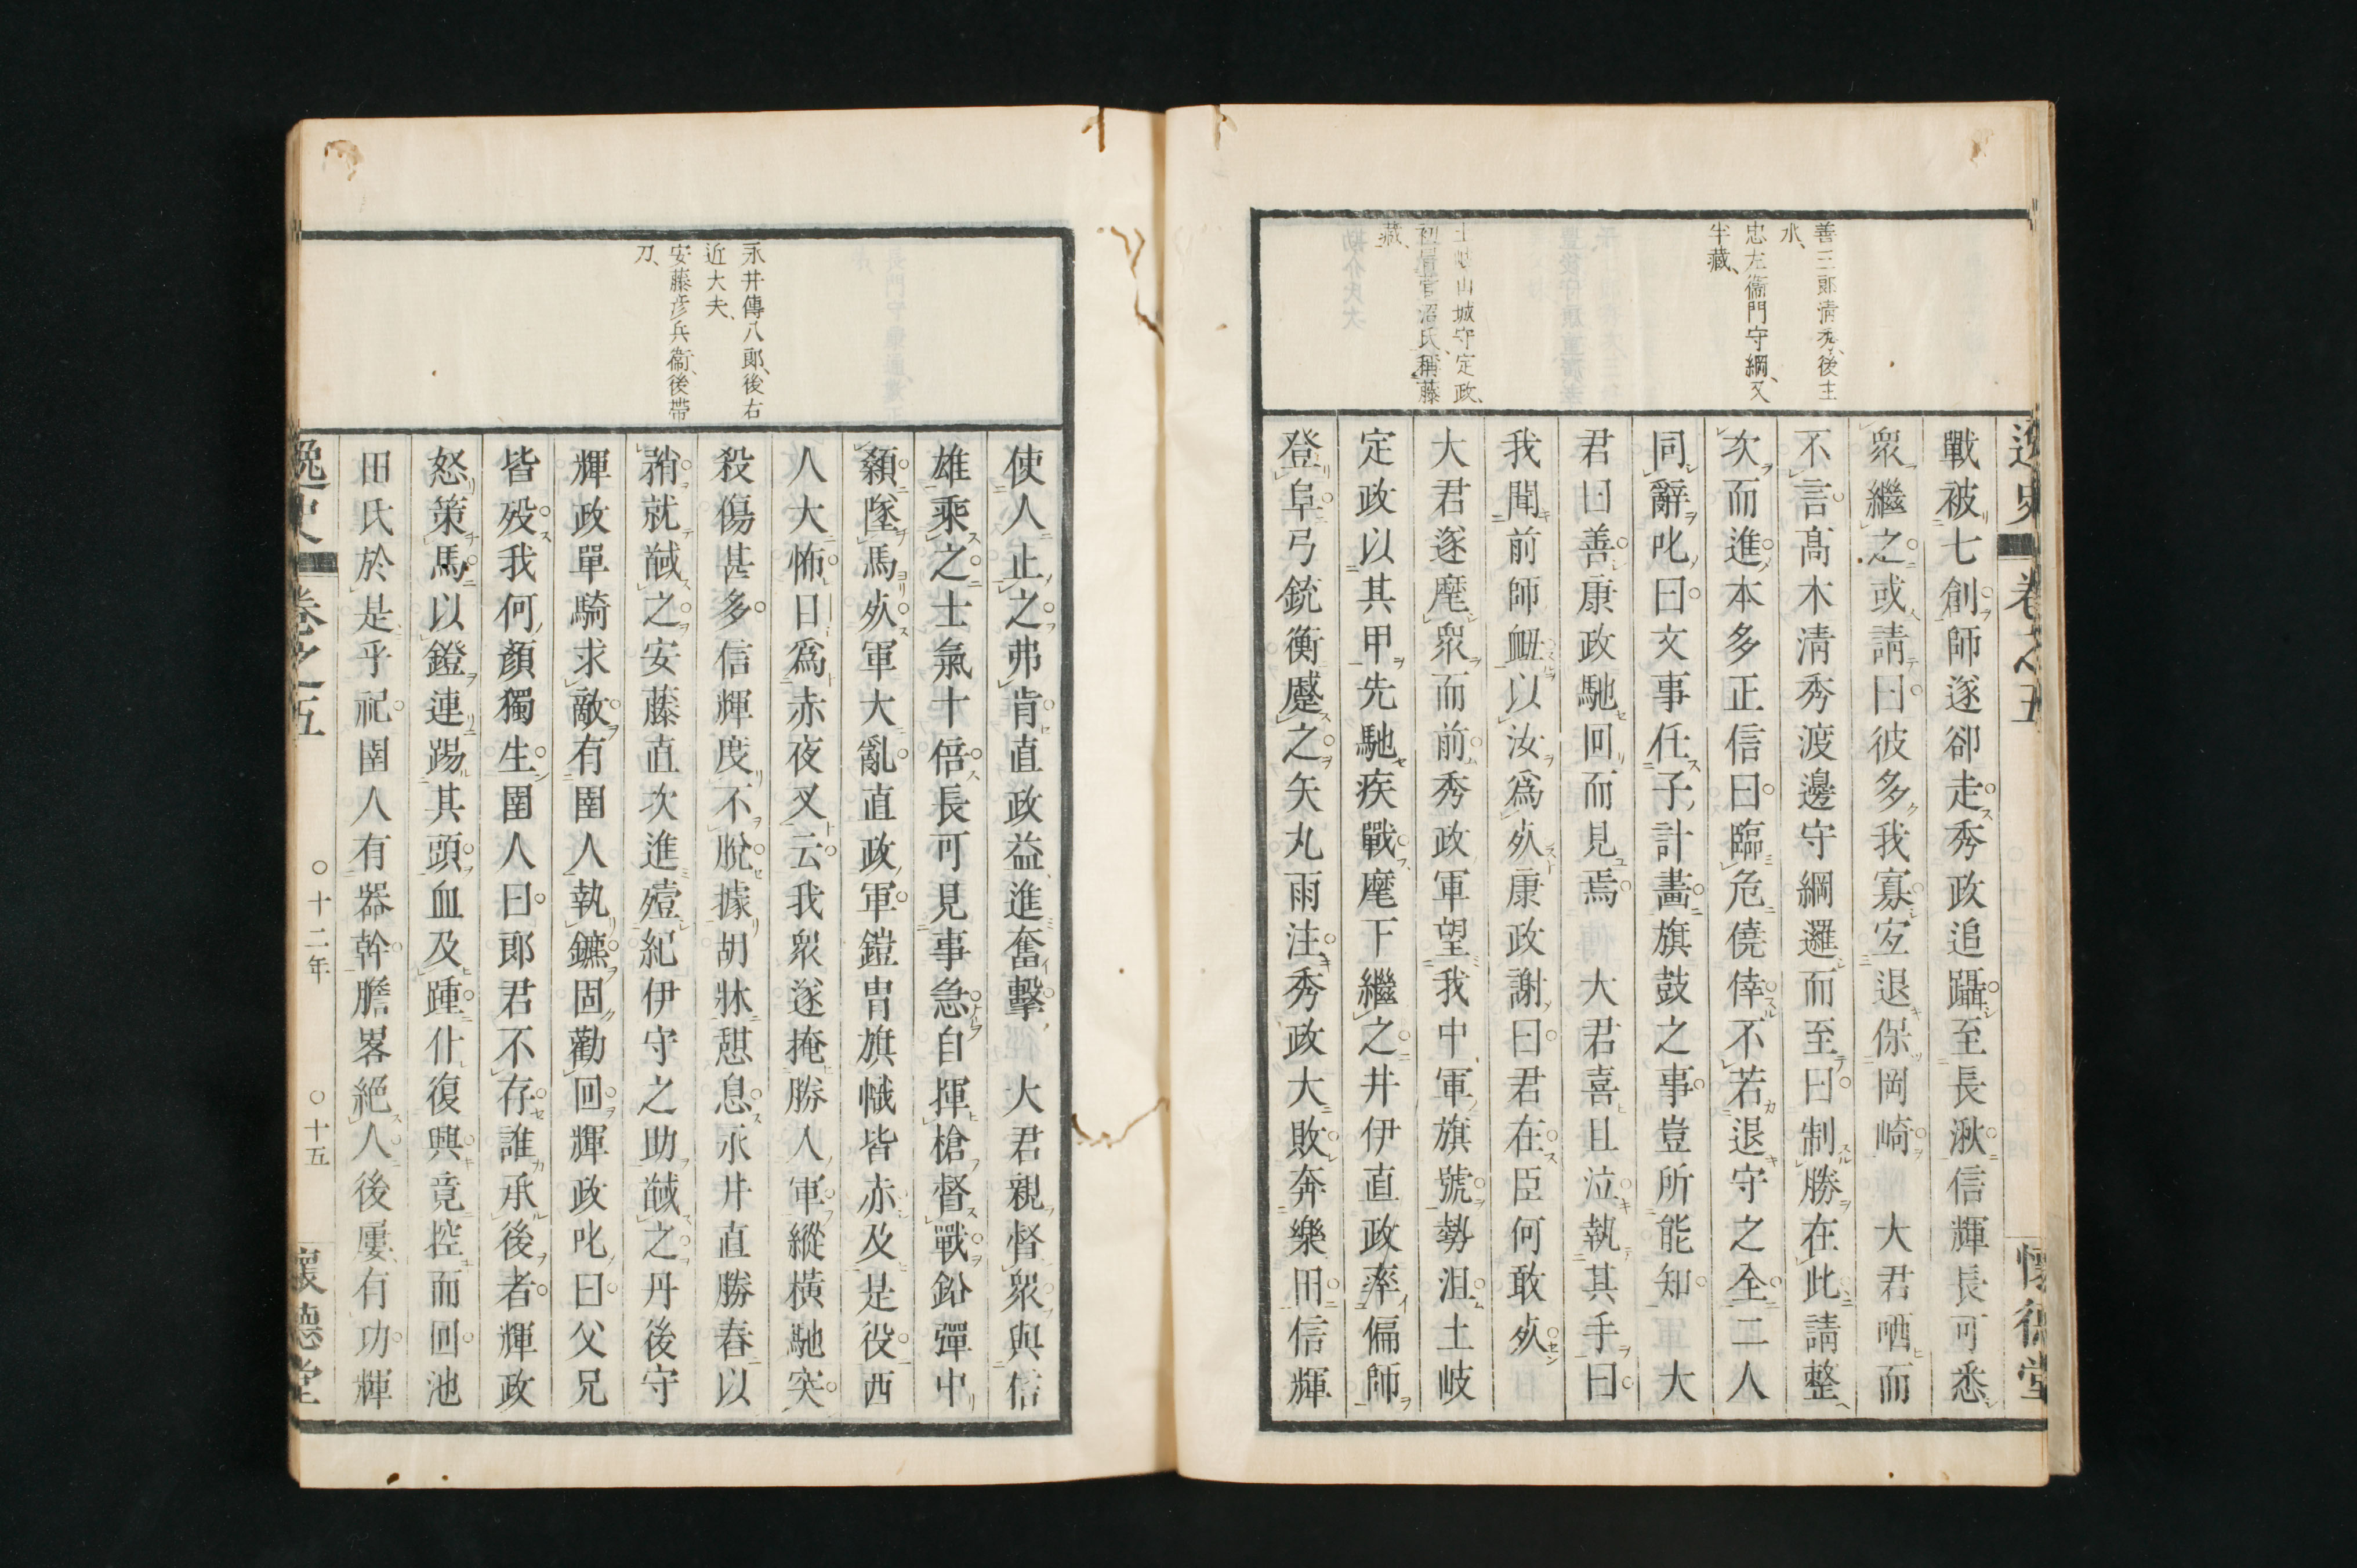 善三郎清秀、後主
水、
忠左衞門守綱、又
半藏、
土岐山城守定政、
初冒菅沼氏、稱藤
藏、
逸史
卷之五
懷德堂
戰被七創師遂卻走秀政追躡至長湫信輝長可悉
衆繼之或請曰彼多我寡宐退保岡崎　大君哂而
不言髙木淸秀渡邊守綱邏而至曰制勝在此請整
次而進本多正信曰臨危僥倖不若退守之全二人
同辭叱曰文事任子計畫旗鼓之事豈所能知　大
君曰善康政馳回而見焉　大君喜且泣執其手曰
我聞前師衄以汝爲㱔康政謝曰君在臣何敢㱔
大君遂麾衆而前秀政軍望我中軍旗號勢沮土岐
定政以其甲先馳疾戰麾下繼之井伊直政率偏師
登阜弓銃衡蹙之矢丸雨注秀政大敗奔樂田信輝
永井傳八郎、後右
近大夫、
安藤彥兵衞、後帶
刀、
使人止之弗肯直政益進奮擊　大君親督衆與信
雄乘之士氣十倍長可見事急自揮槍督戰鉛彈中
顙墜馬㱔軍大亂直政軍鎧冑旗幟皆赤及是役西
人大怖目爲赤夜叉云我衆遂掩勝人軍縱橫馳突
殺傷甚多信輝度不脫據胡牀憇息永井直勝春以
矟就馘之安藤直次進殪紀伊守之助馘之丹後守
輝政單騎求敵有圉人執鑣固勸回輝政叱曰父兄
皆歿我何顏獨生圉人曰郎君不存誰承後者輝政
怒策馬以鐙連踢其頭血及踵仆復興竟控而回池
田氏於是乎祀圉人有器幹膽畧絕人後屢有功輝
逸史
卷之五
○十二年
○十五
懷德堂